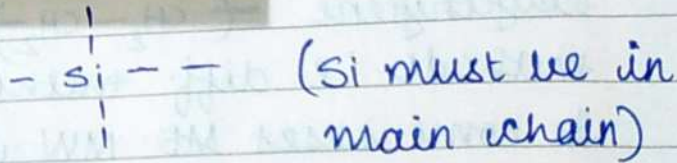 - Si - - (Si must be in
main chain)